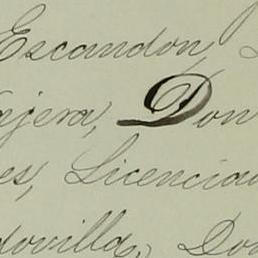 Escandon,
ajera, Don
es, Licencia
dovilla, Do